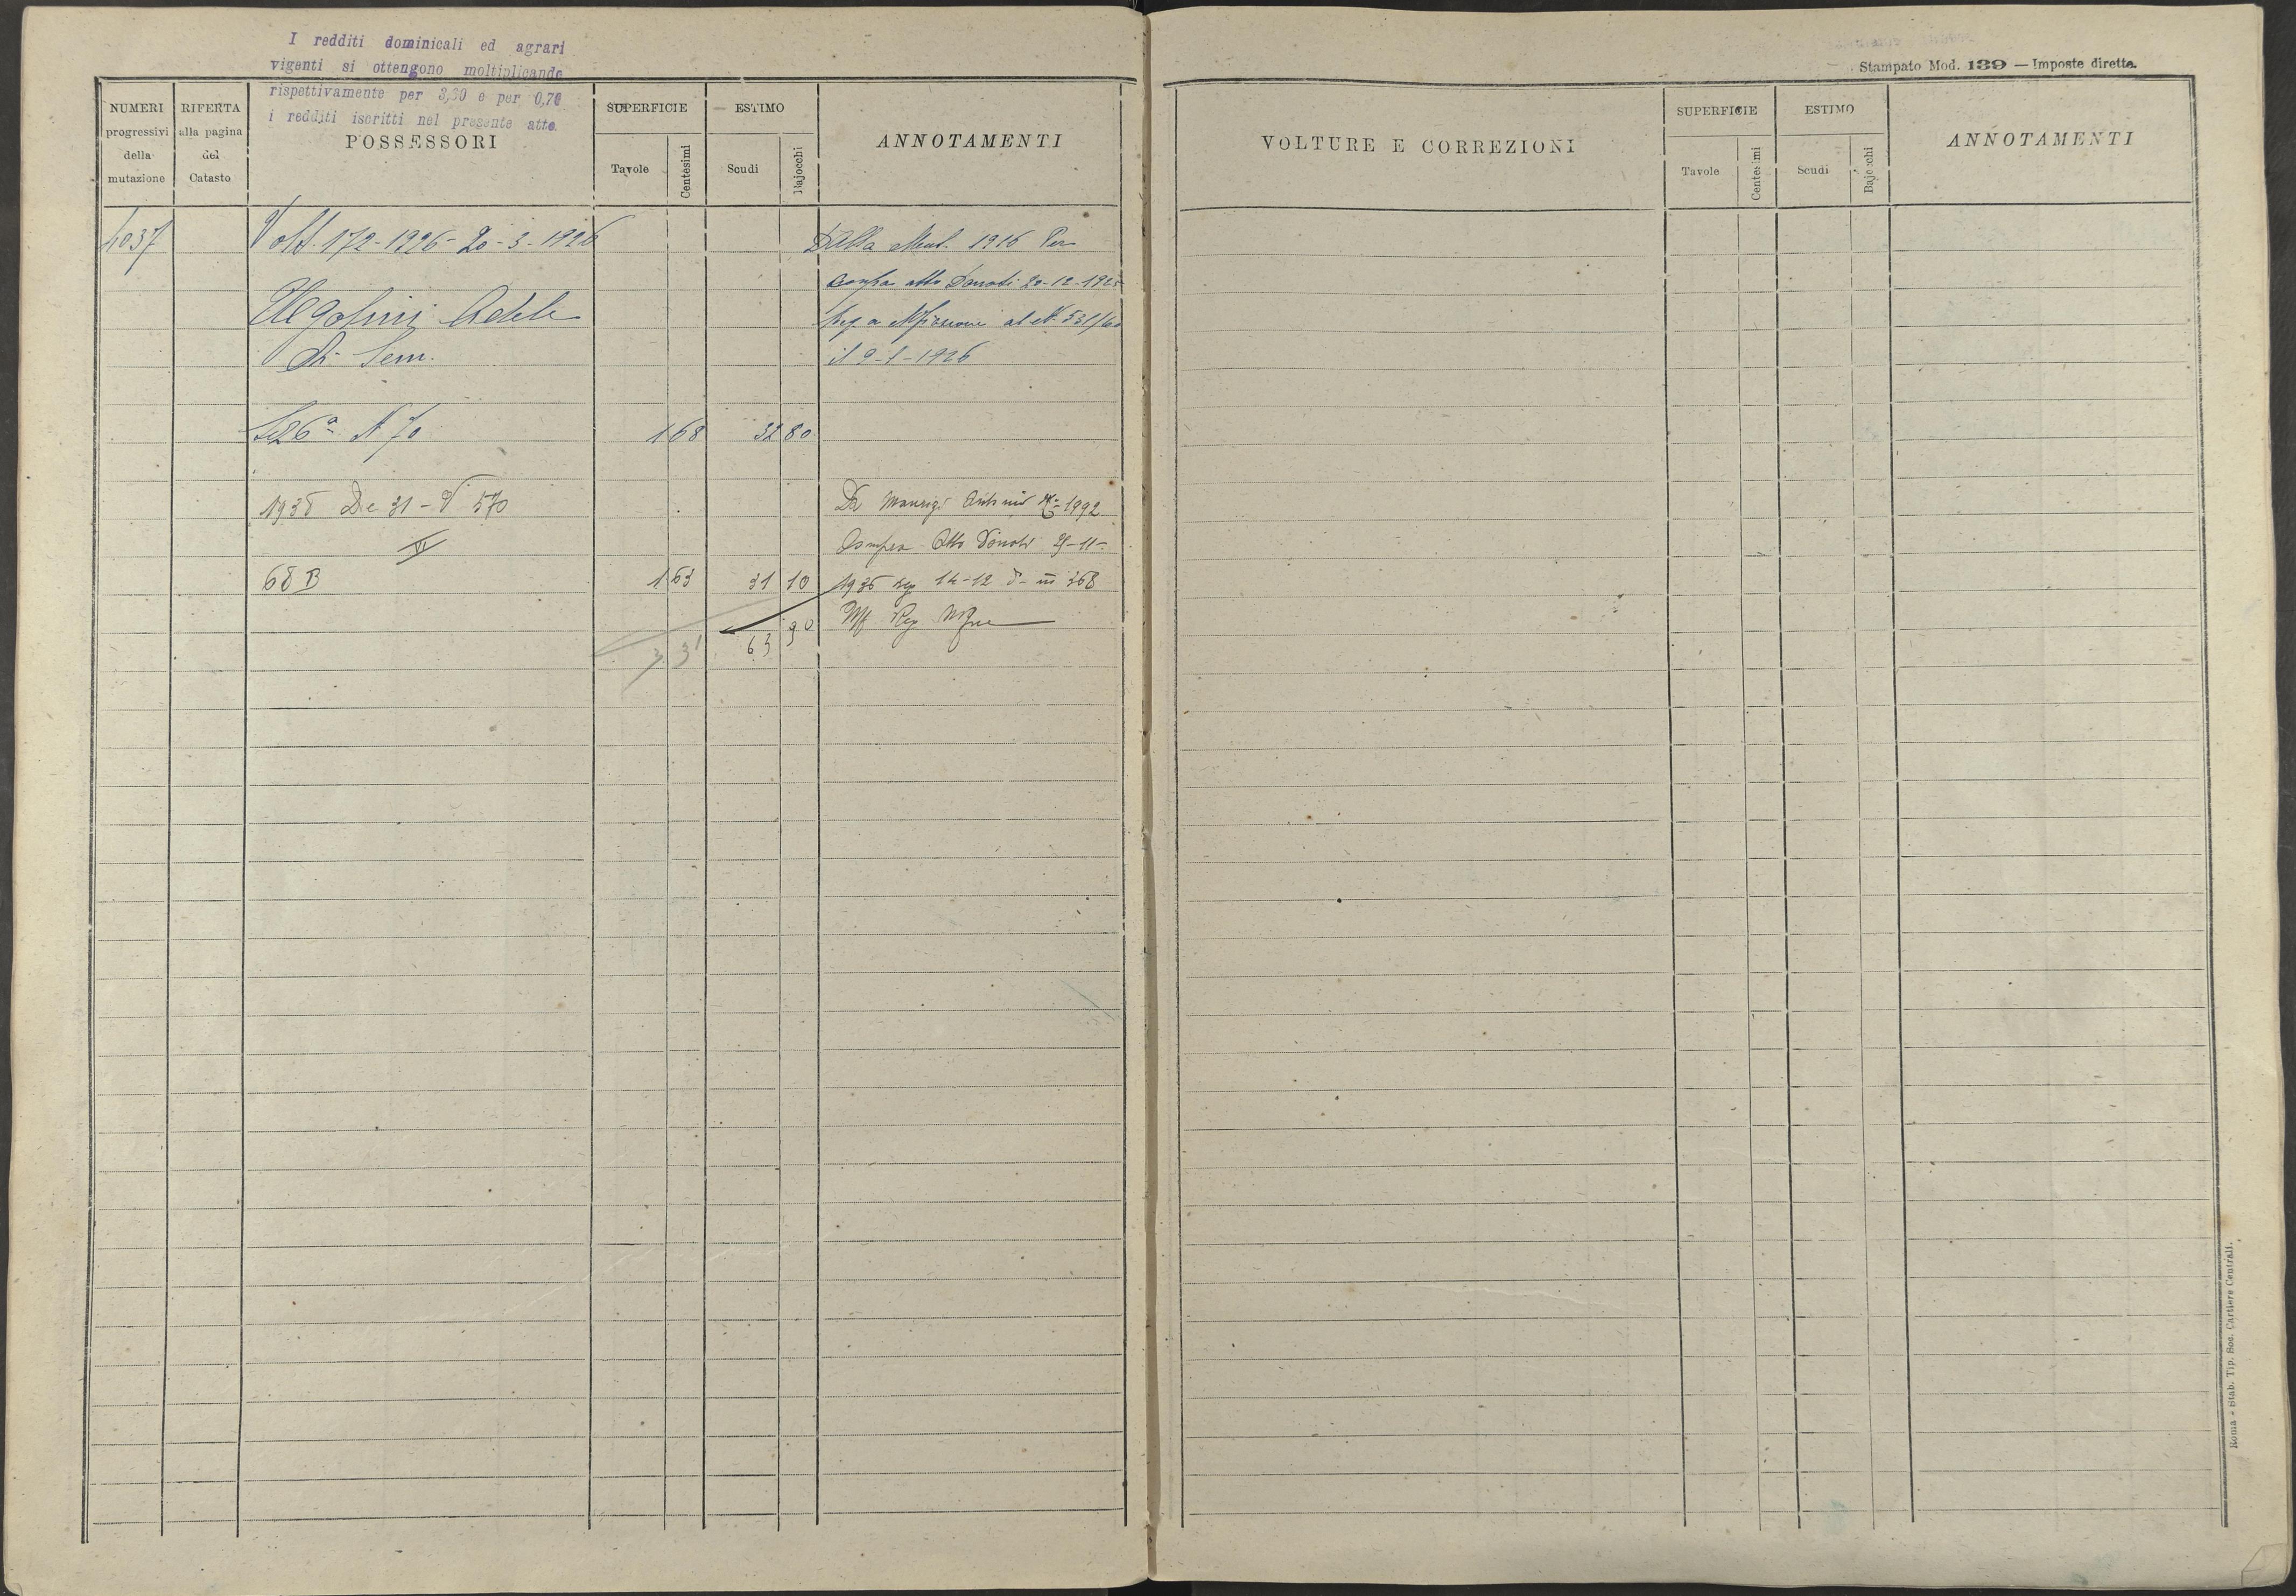 I redditi dominicali ed agrari
vigenti si ottengono moltiplicando
rispettivamente per 3,30 e per 0,70
i redditi iscritti nel presente atto.
Stampato Mod. 139 — Imposte dirette.
NUMERI progressivi della mutazione
RIFERTA alla pagina del Catasto
POSSESSORI
SUPERFICIE
Tavole
Centesimi
ESTIMO
Scudi
Bajocchi
ANNOTAMENTI
VOLTURE E CORREZIONI
SUPERFICIE
Tavole
Centesimi
ESTIMO
Scudi
Bajocchi
ANNOTAMENTI
4037 Volt. 172-1926- 20-3-1926 Dalla Mut. 1916 Per
compra atto Donati 20-12-1925
Ugolini Adele
al N. 531/60
di Sem. il 9-1-1926
Sez 6a N 70 1 68 32 80
1938 De 31 - V 570 Da Antonio 1992
VI Compra Atto Donati 25-11-
68 B 1 63 31 10 1935 reg 14-12 d- III 368
Uff Reg
3 31 63 90
Roma - Stab. Tip. Soc. Cartiere Centrali.